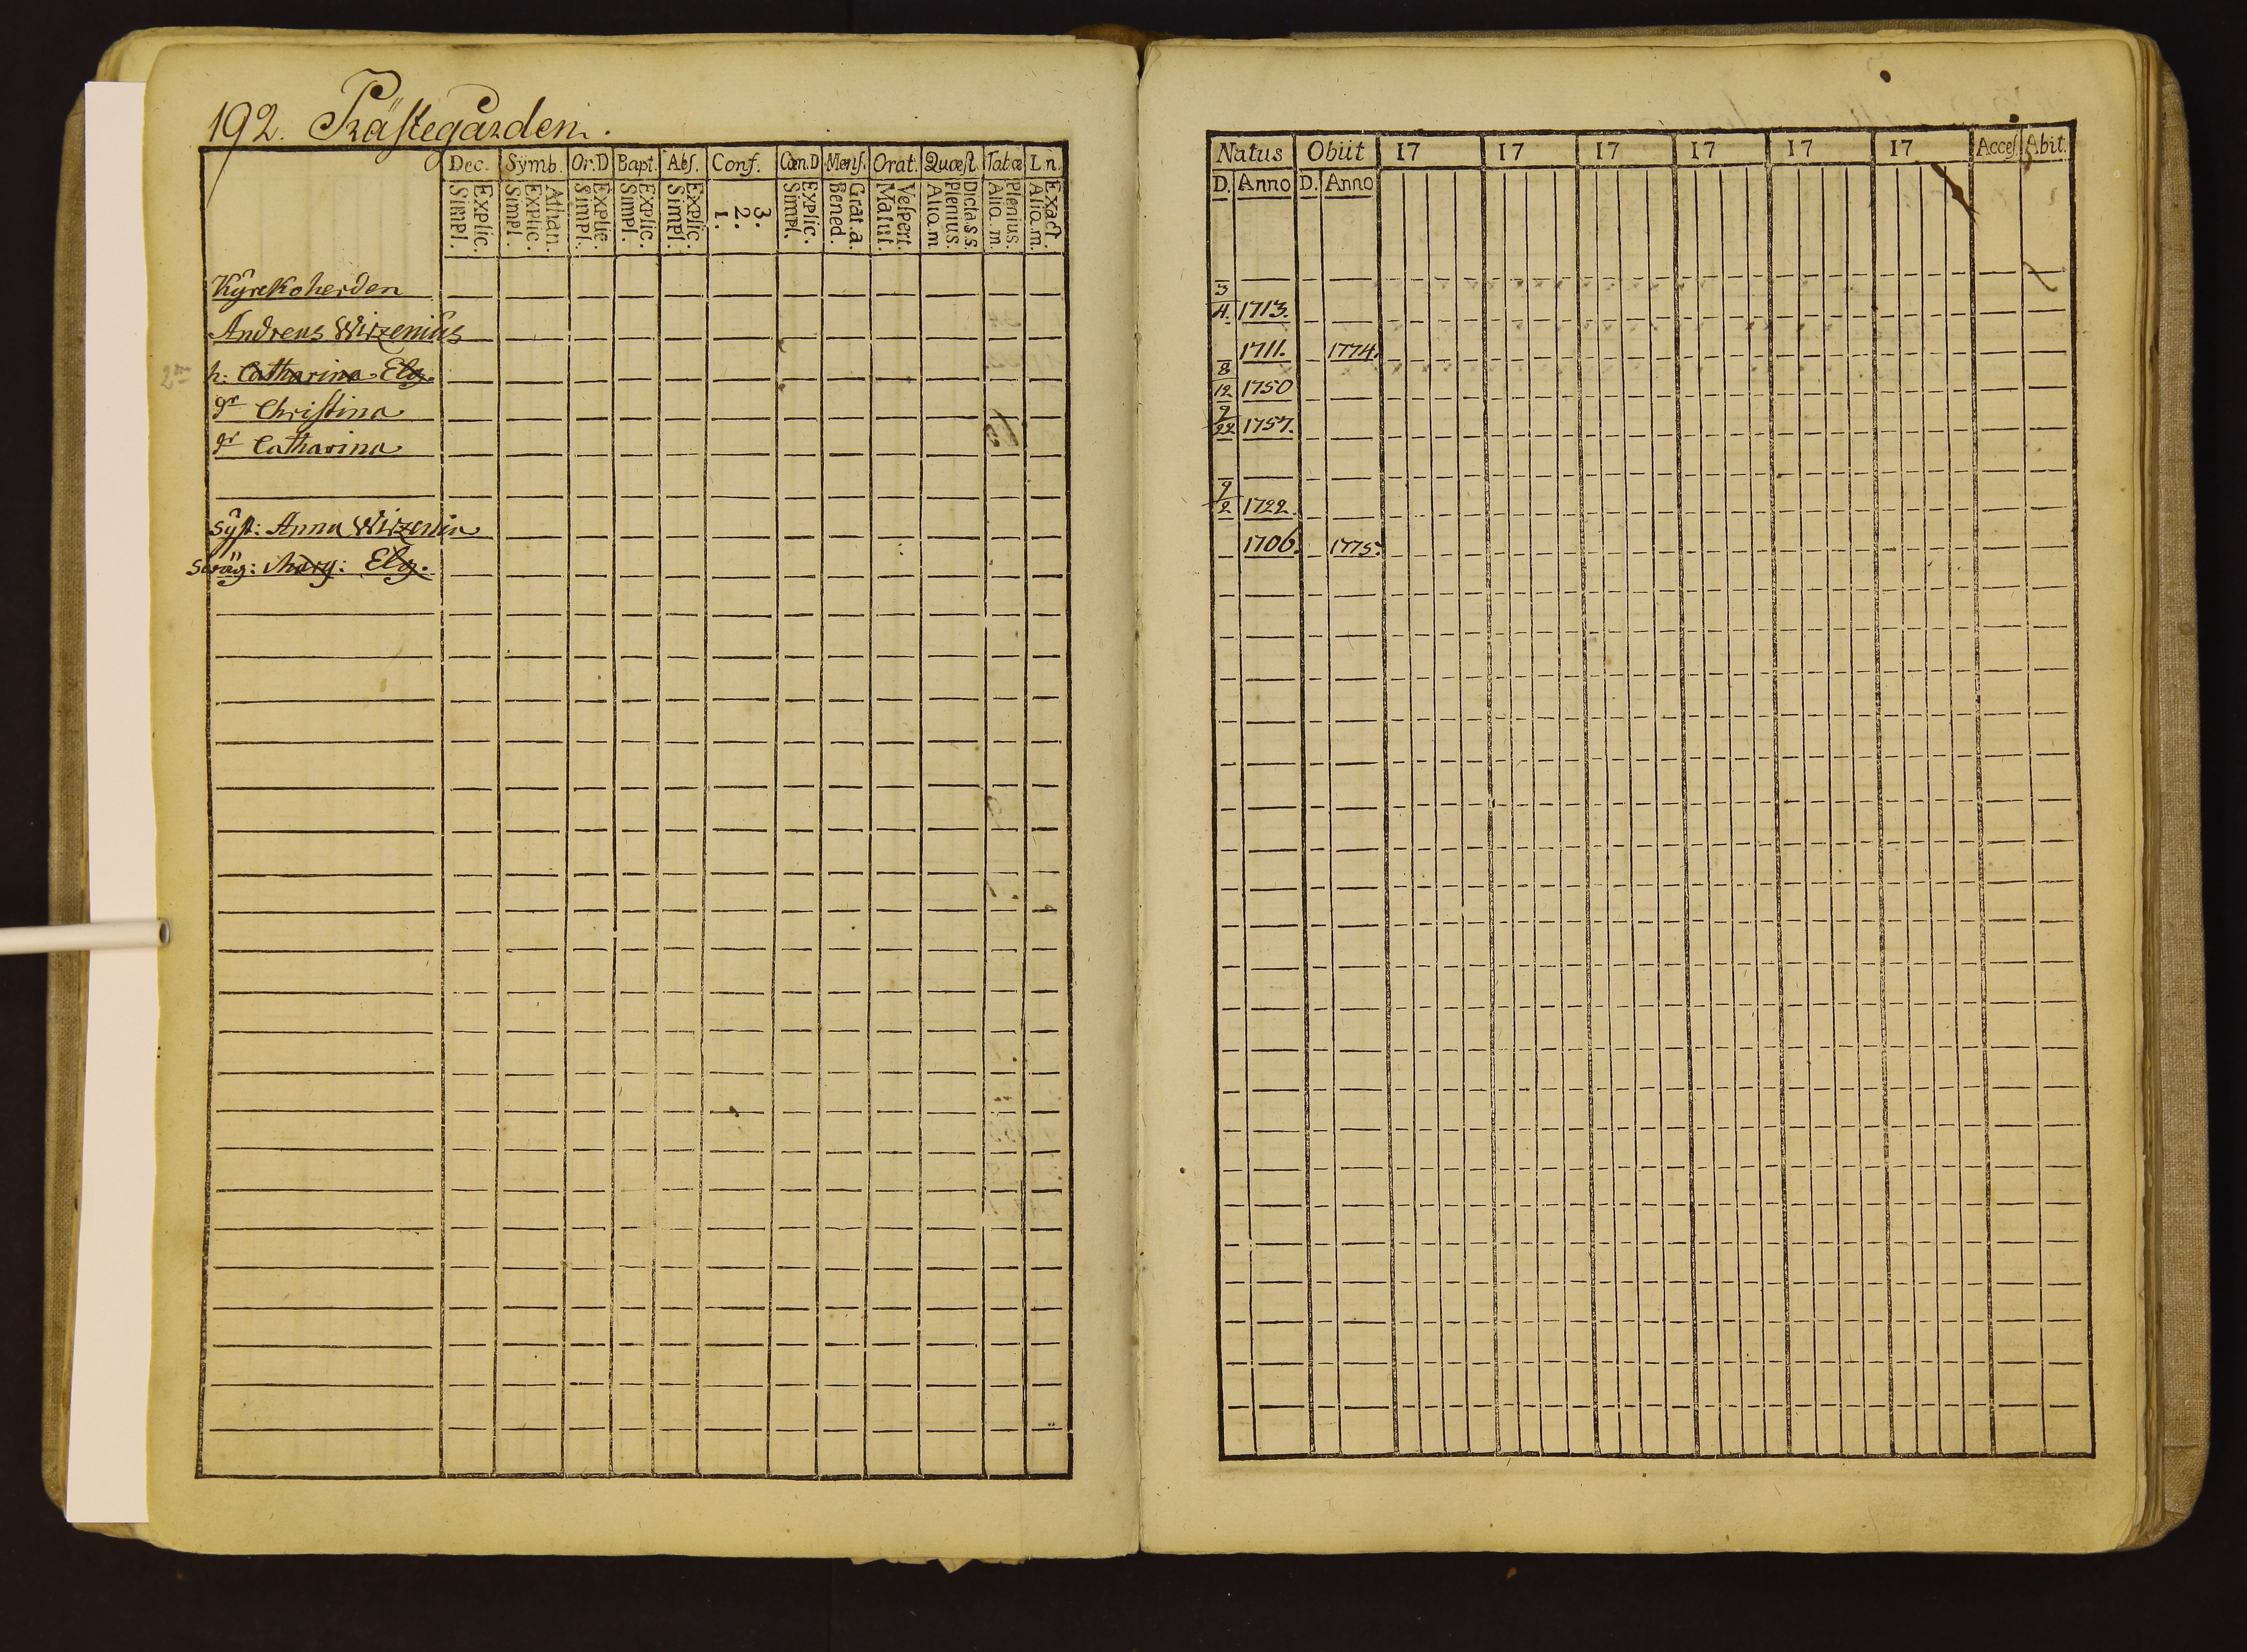 192. Prästegården.
Dec. Sÿmb. Or.D Bapt. Abs. Conf. Cœn.D Mens. Orat. Quæst. Tabæ L.n.
Explic. Simpl. Athan. Explic. Simpl. Explic. Simpl. Explic. Simpl. Explic. Simpl. 3. 2. 1. Explic. Simpl. Grat.a. Bened. Vespert. Matut. Dicta s s. Plenius. Aliq.m Plenius. Aliq.m. Exact. Aliq.m.
Kÿrckoherden
Andreas Wirzenius
h: Catharina Elg.
gr Christina
gr Catharina
Sÿst: Anna Wirzenia
Swäg: Marg: Elg.
Natus Obiit 17 17 17 17 17 17 Acces. Abit.
D. Anno D. Anno
3/4. 1713.
1711. 1774.
8/12 1750
9/22 1757.
9/2 1722.
1706. 1775.